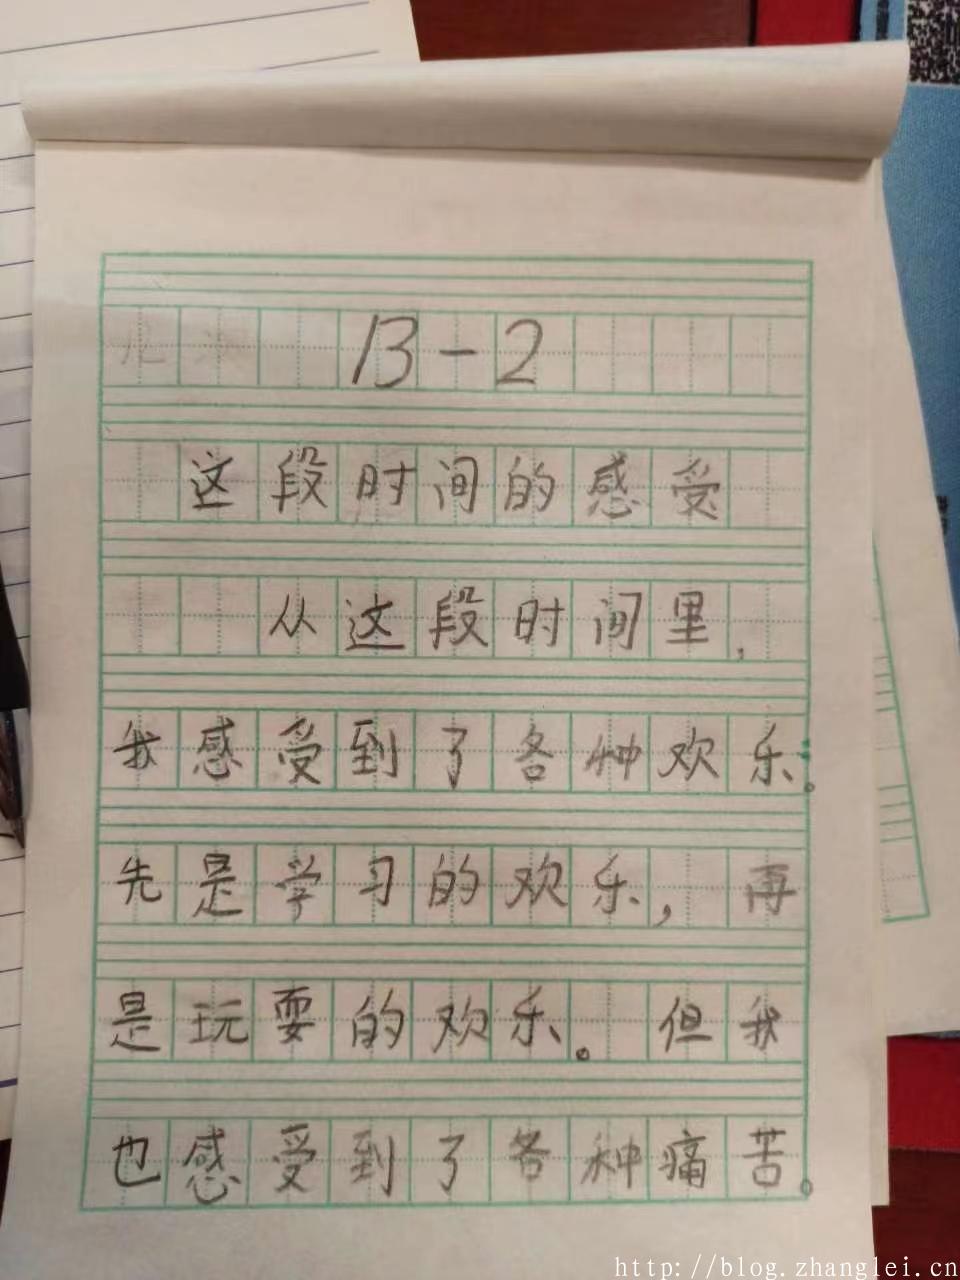 13-2
这段时间的感受
从这段时间里，
我感受到了各种欢乐。
先是学习的欢乐，再
是玩耍的欢乐。但我
也感受到了各种痛苦。
http://blog.zhanglei.cn